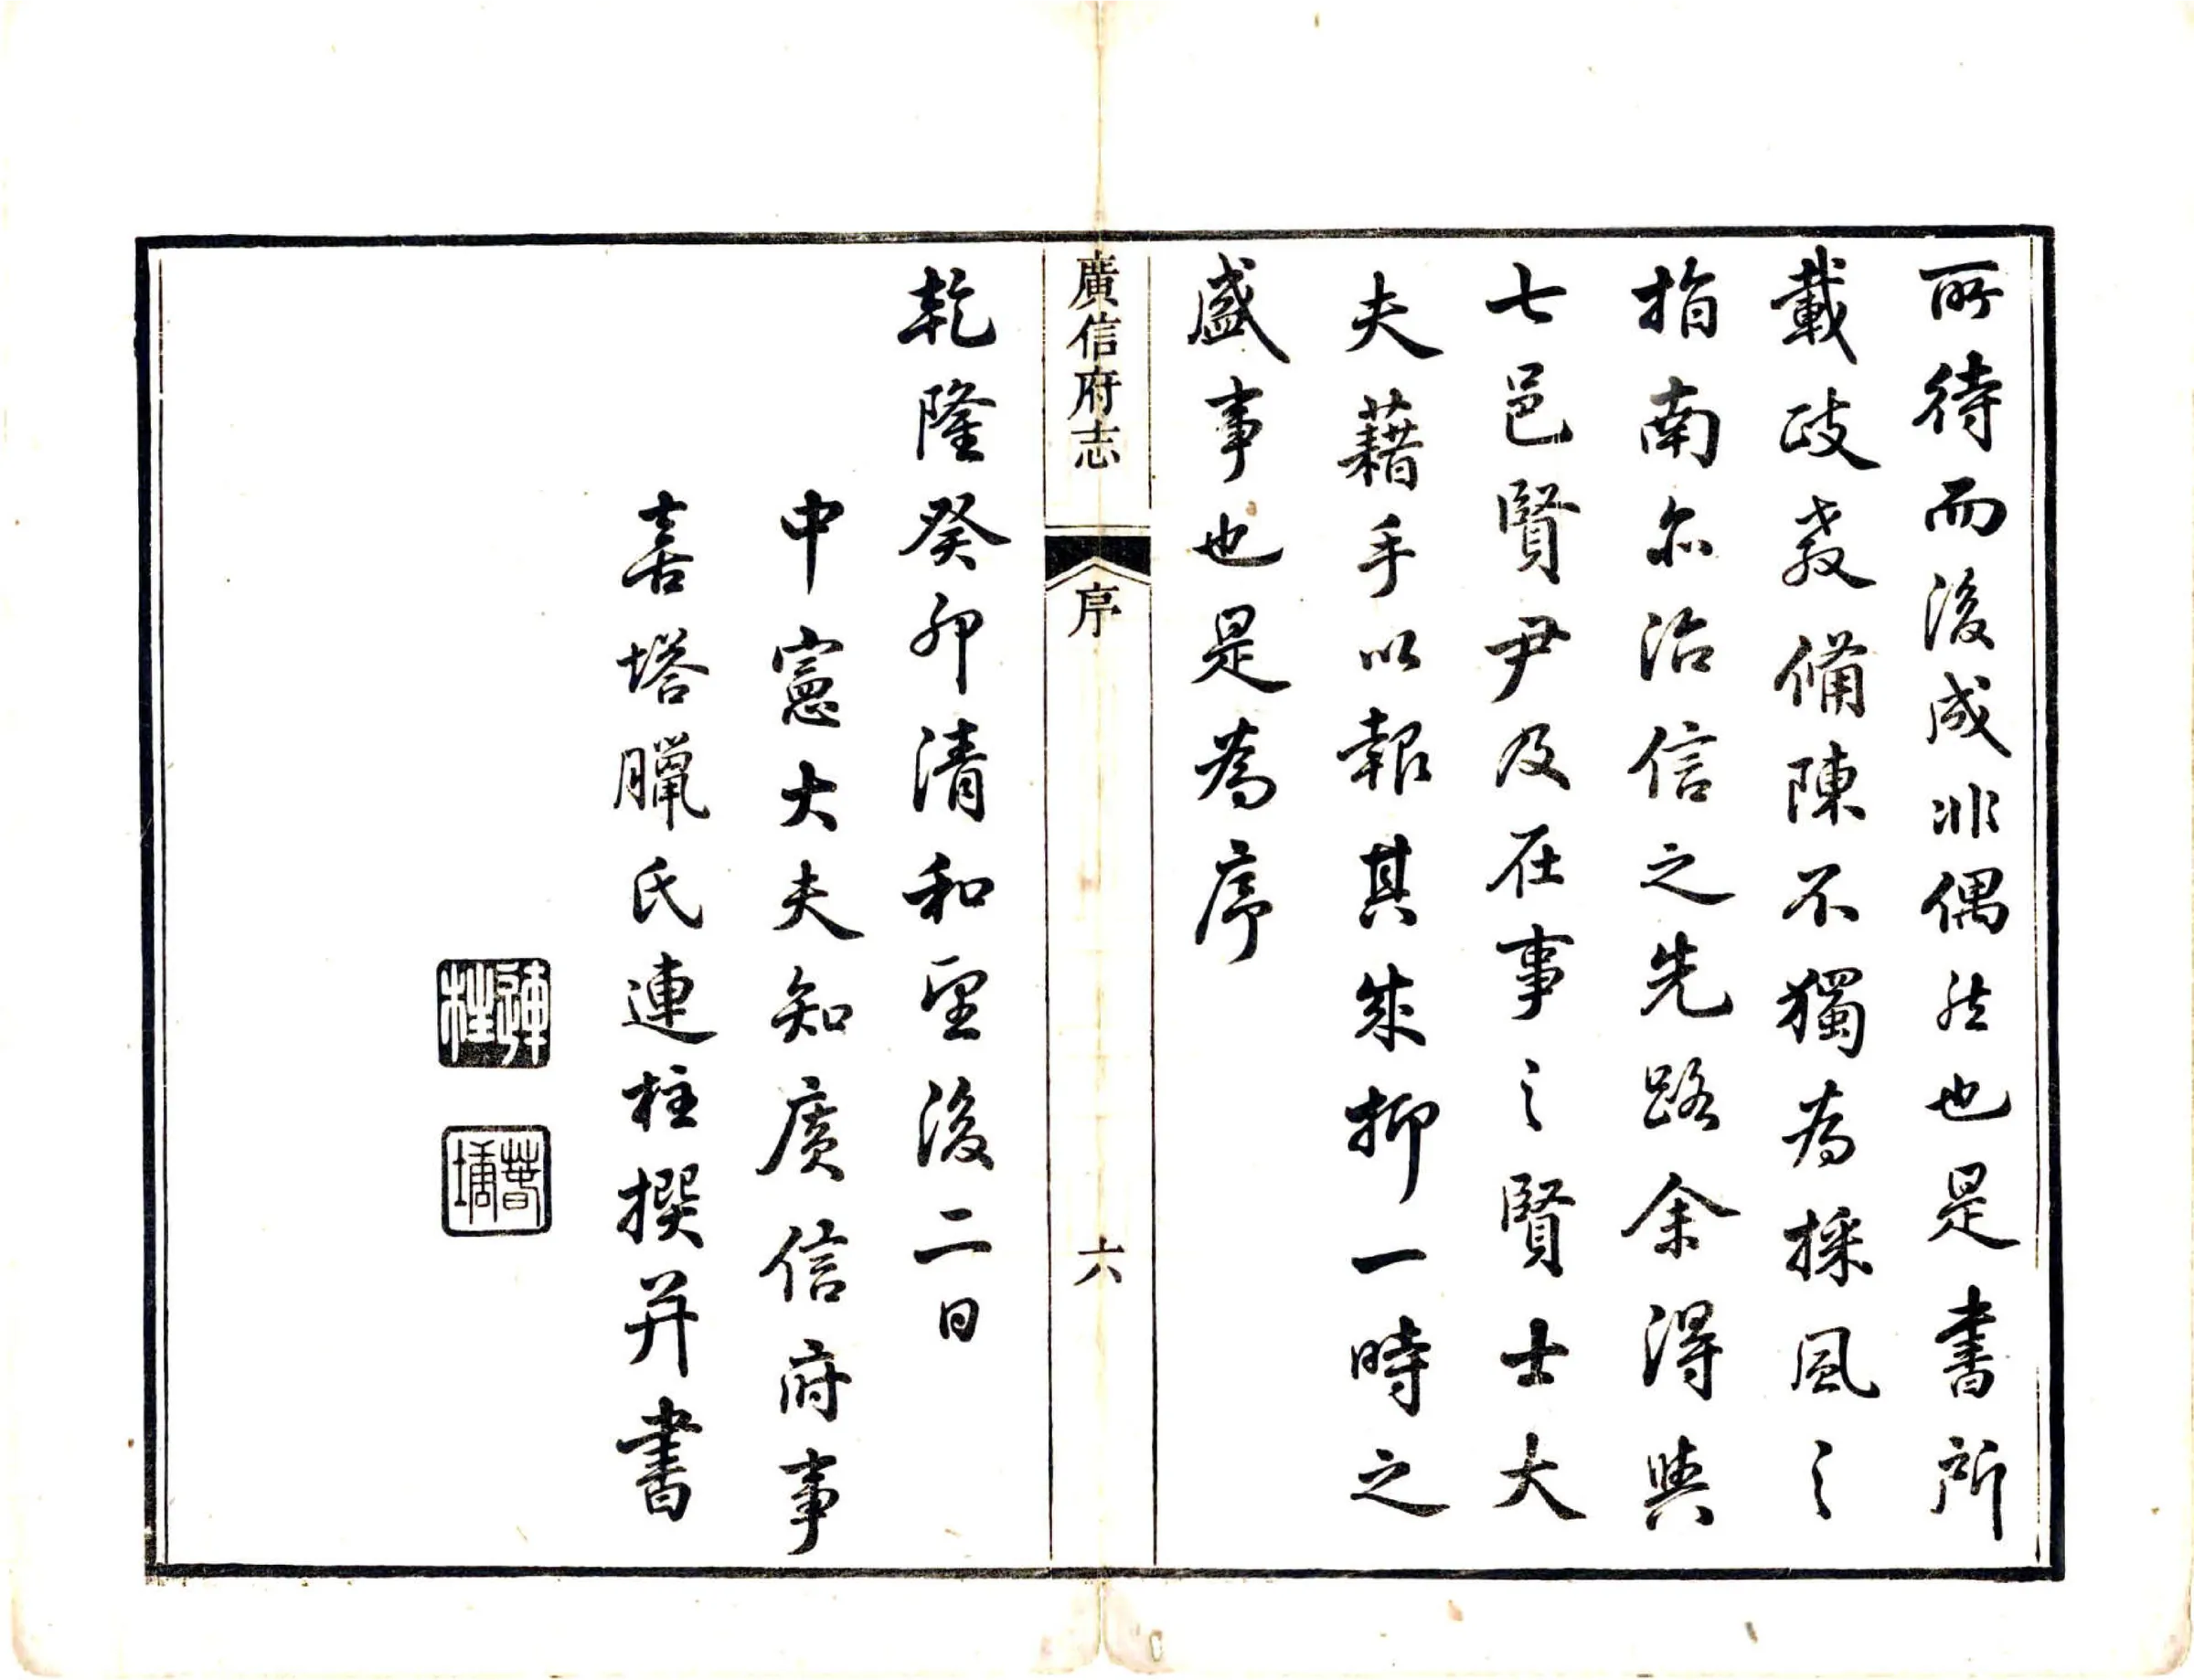 所待而後成非偶然也是書所
載政教備陳不獨為採風之
指南亦治信之先路余得與
七邑賢尹及在事之賢士大
夫藉手以報其成抑一時之
盛事也是為序
廣信府志
序
六
乾隆癸卯清和望後二日
中憲大夫知廣信府事
喜塔臘氏連柱撰并書
連柱